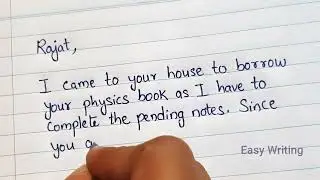 Rajat,
I came to your house to borrow
your physics book as I have to
complete the pending notes. Since
you
Easy Writing